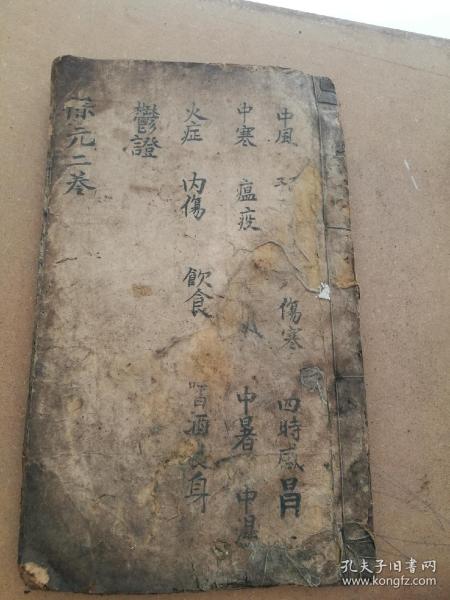 中風 傷寒 四時感冒
中寒 瘟疫 中暑 中濕
火症 內傷 飲食 嗜酒 身
鬱證
保元二卷
孔夫子旧书网
www.kongfz.com